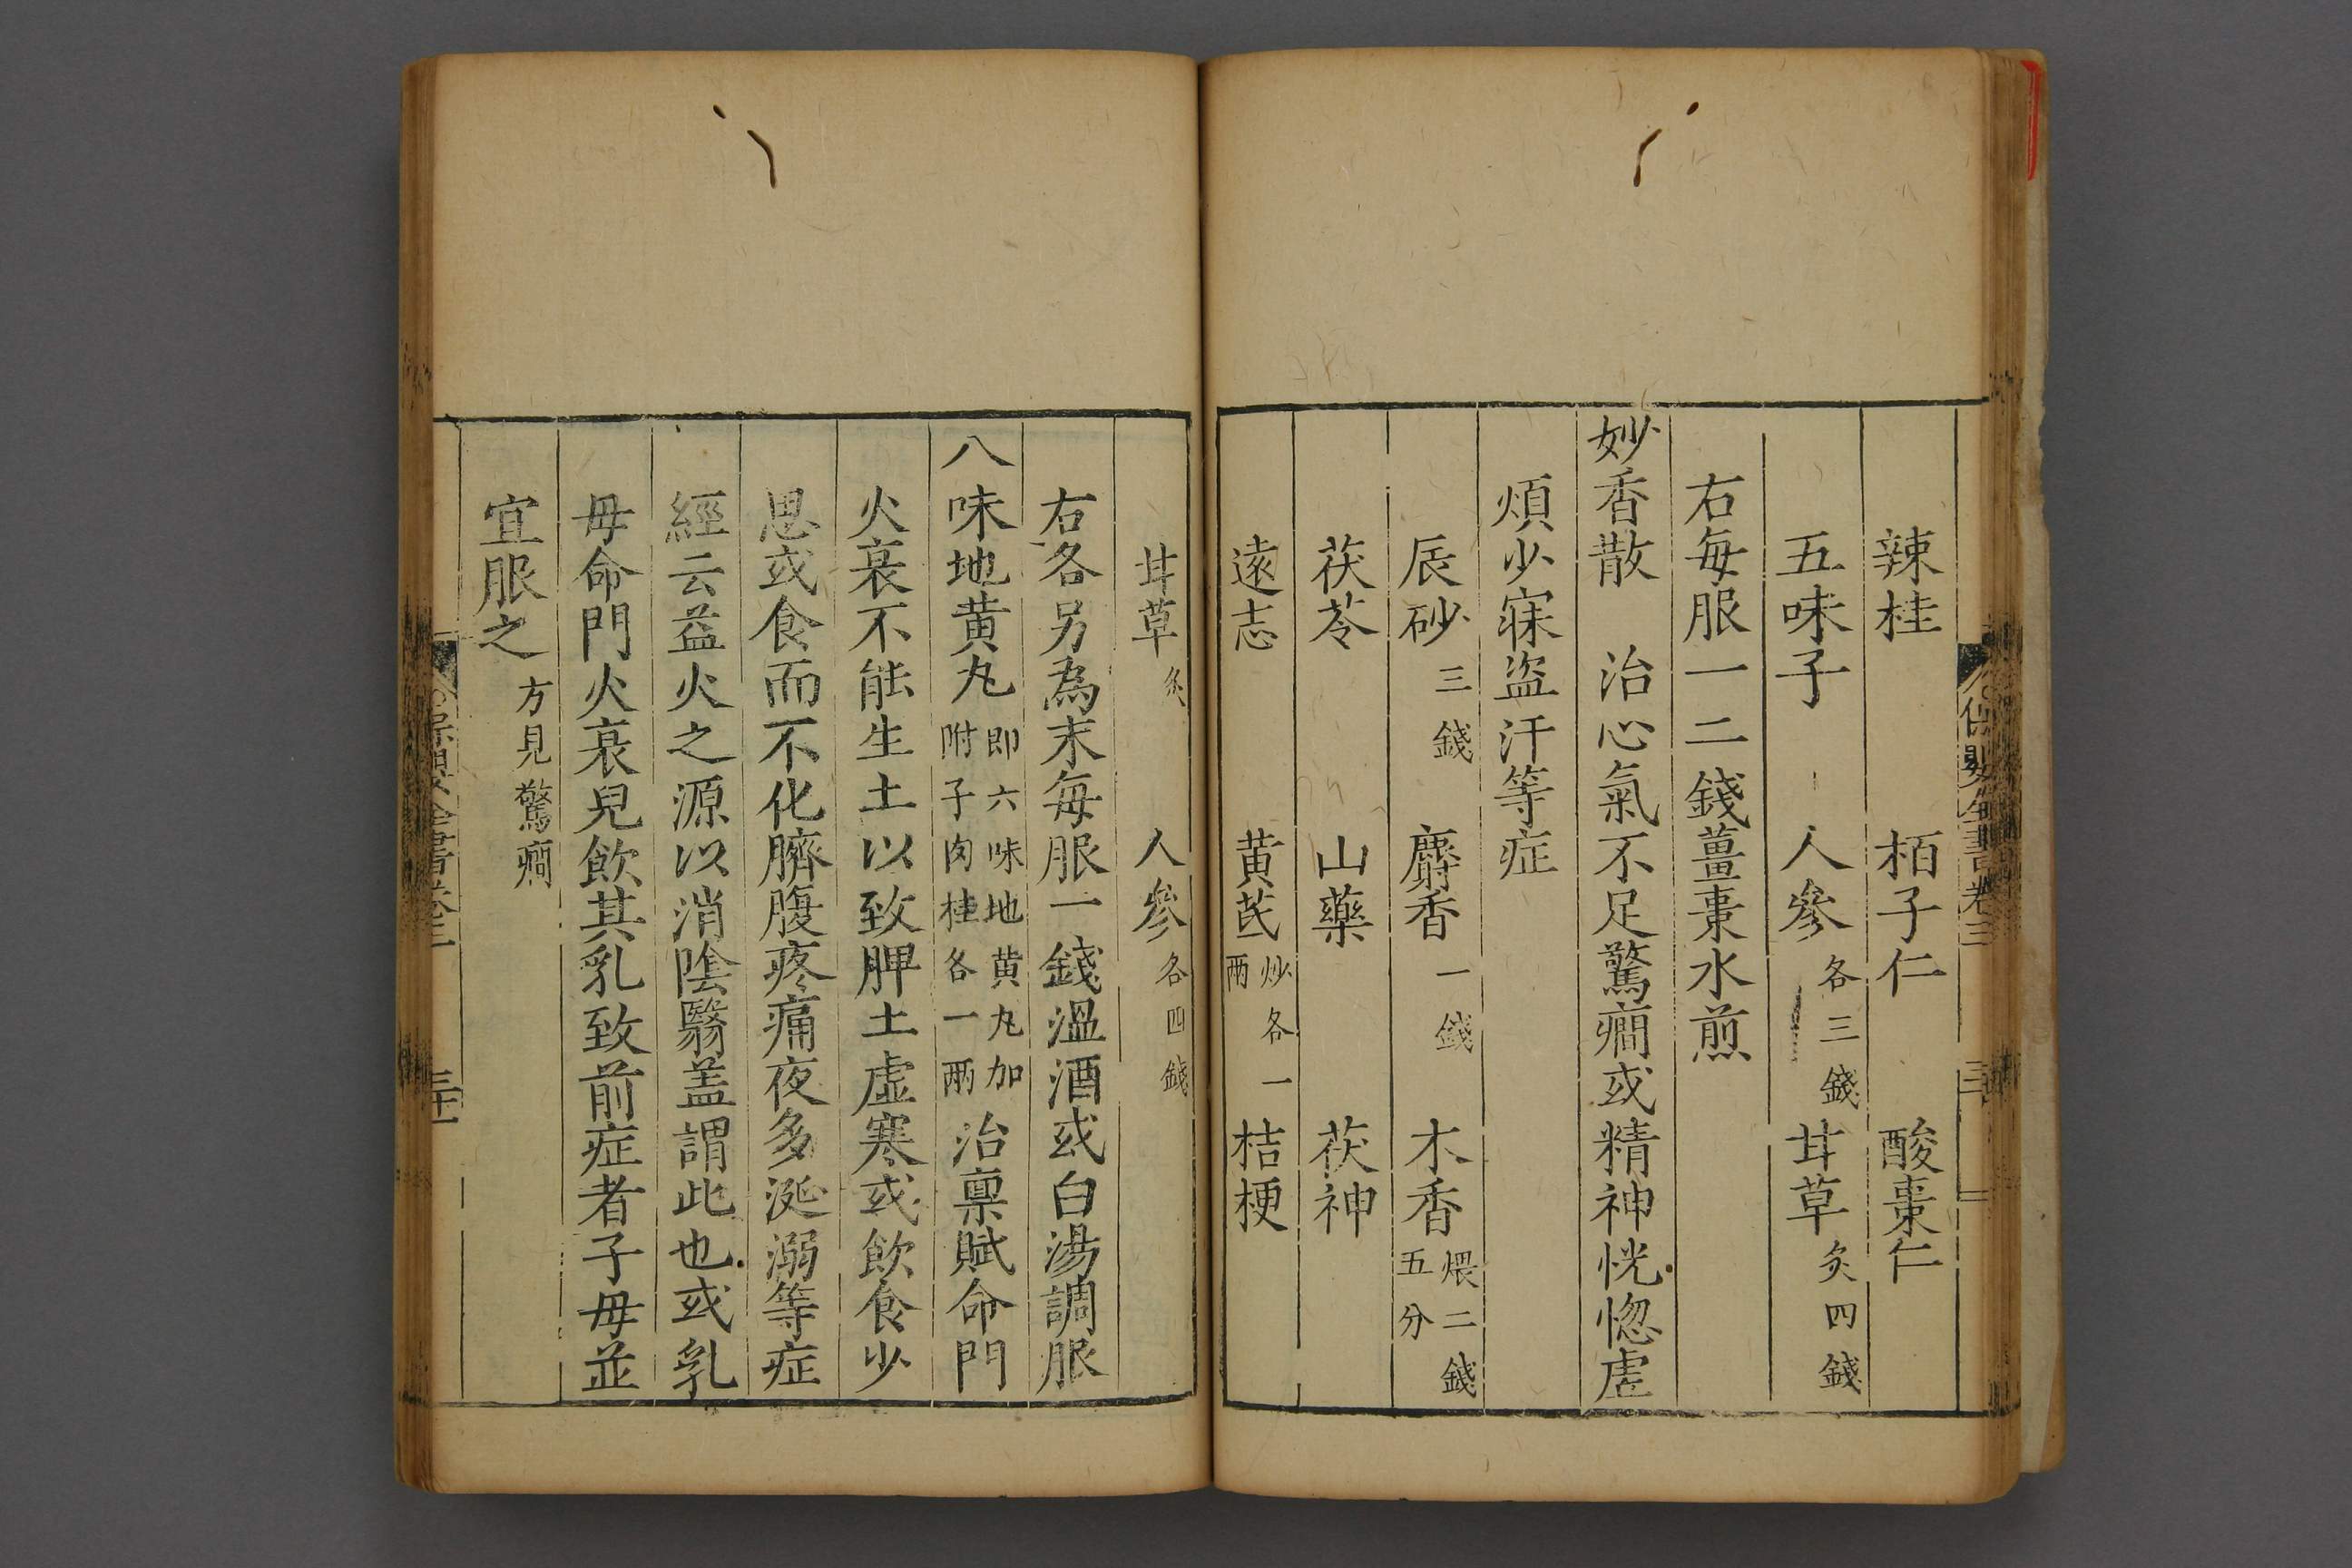 辣桂 栢子仁 酸棗仁
五味子 人參各三錢 甘草炙四錢
右每服一二錢薑棗水煎
妙香散 治心氣不足驚癇或精神恍惚虛
煩少寐盜汗等症
辰砂三錢 麝香一錢 木香煨二錢五分
茯苓 山藥 茯神
遠志 黃芪炒各一兩 桔梗
甘草炙 人參各四錢
右各另為末每服一錢溫酒或白湯調服
八味地黃丸即六味地黃丸加附子肉桂各一兩 治稟賦命門
火衰不能生土以致脾土虛寒或飲食少
思或食而不化臍腹疼痛夜多涎溺等症
經云益火之源以消陰翳盖謂此也或乳
毋命門火衰兒飲其乳致前症者子毋並
宜服之方見驚癇